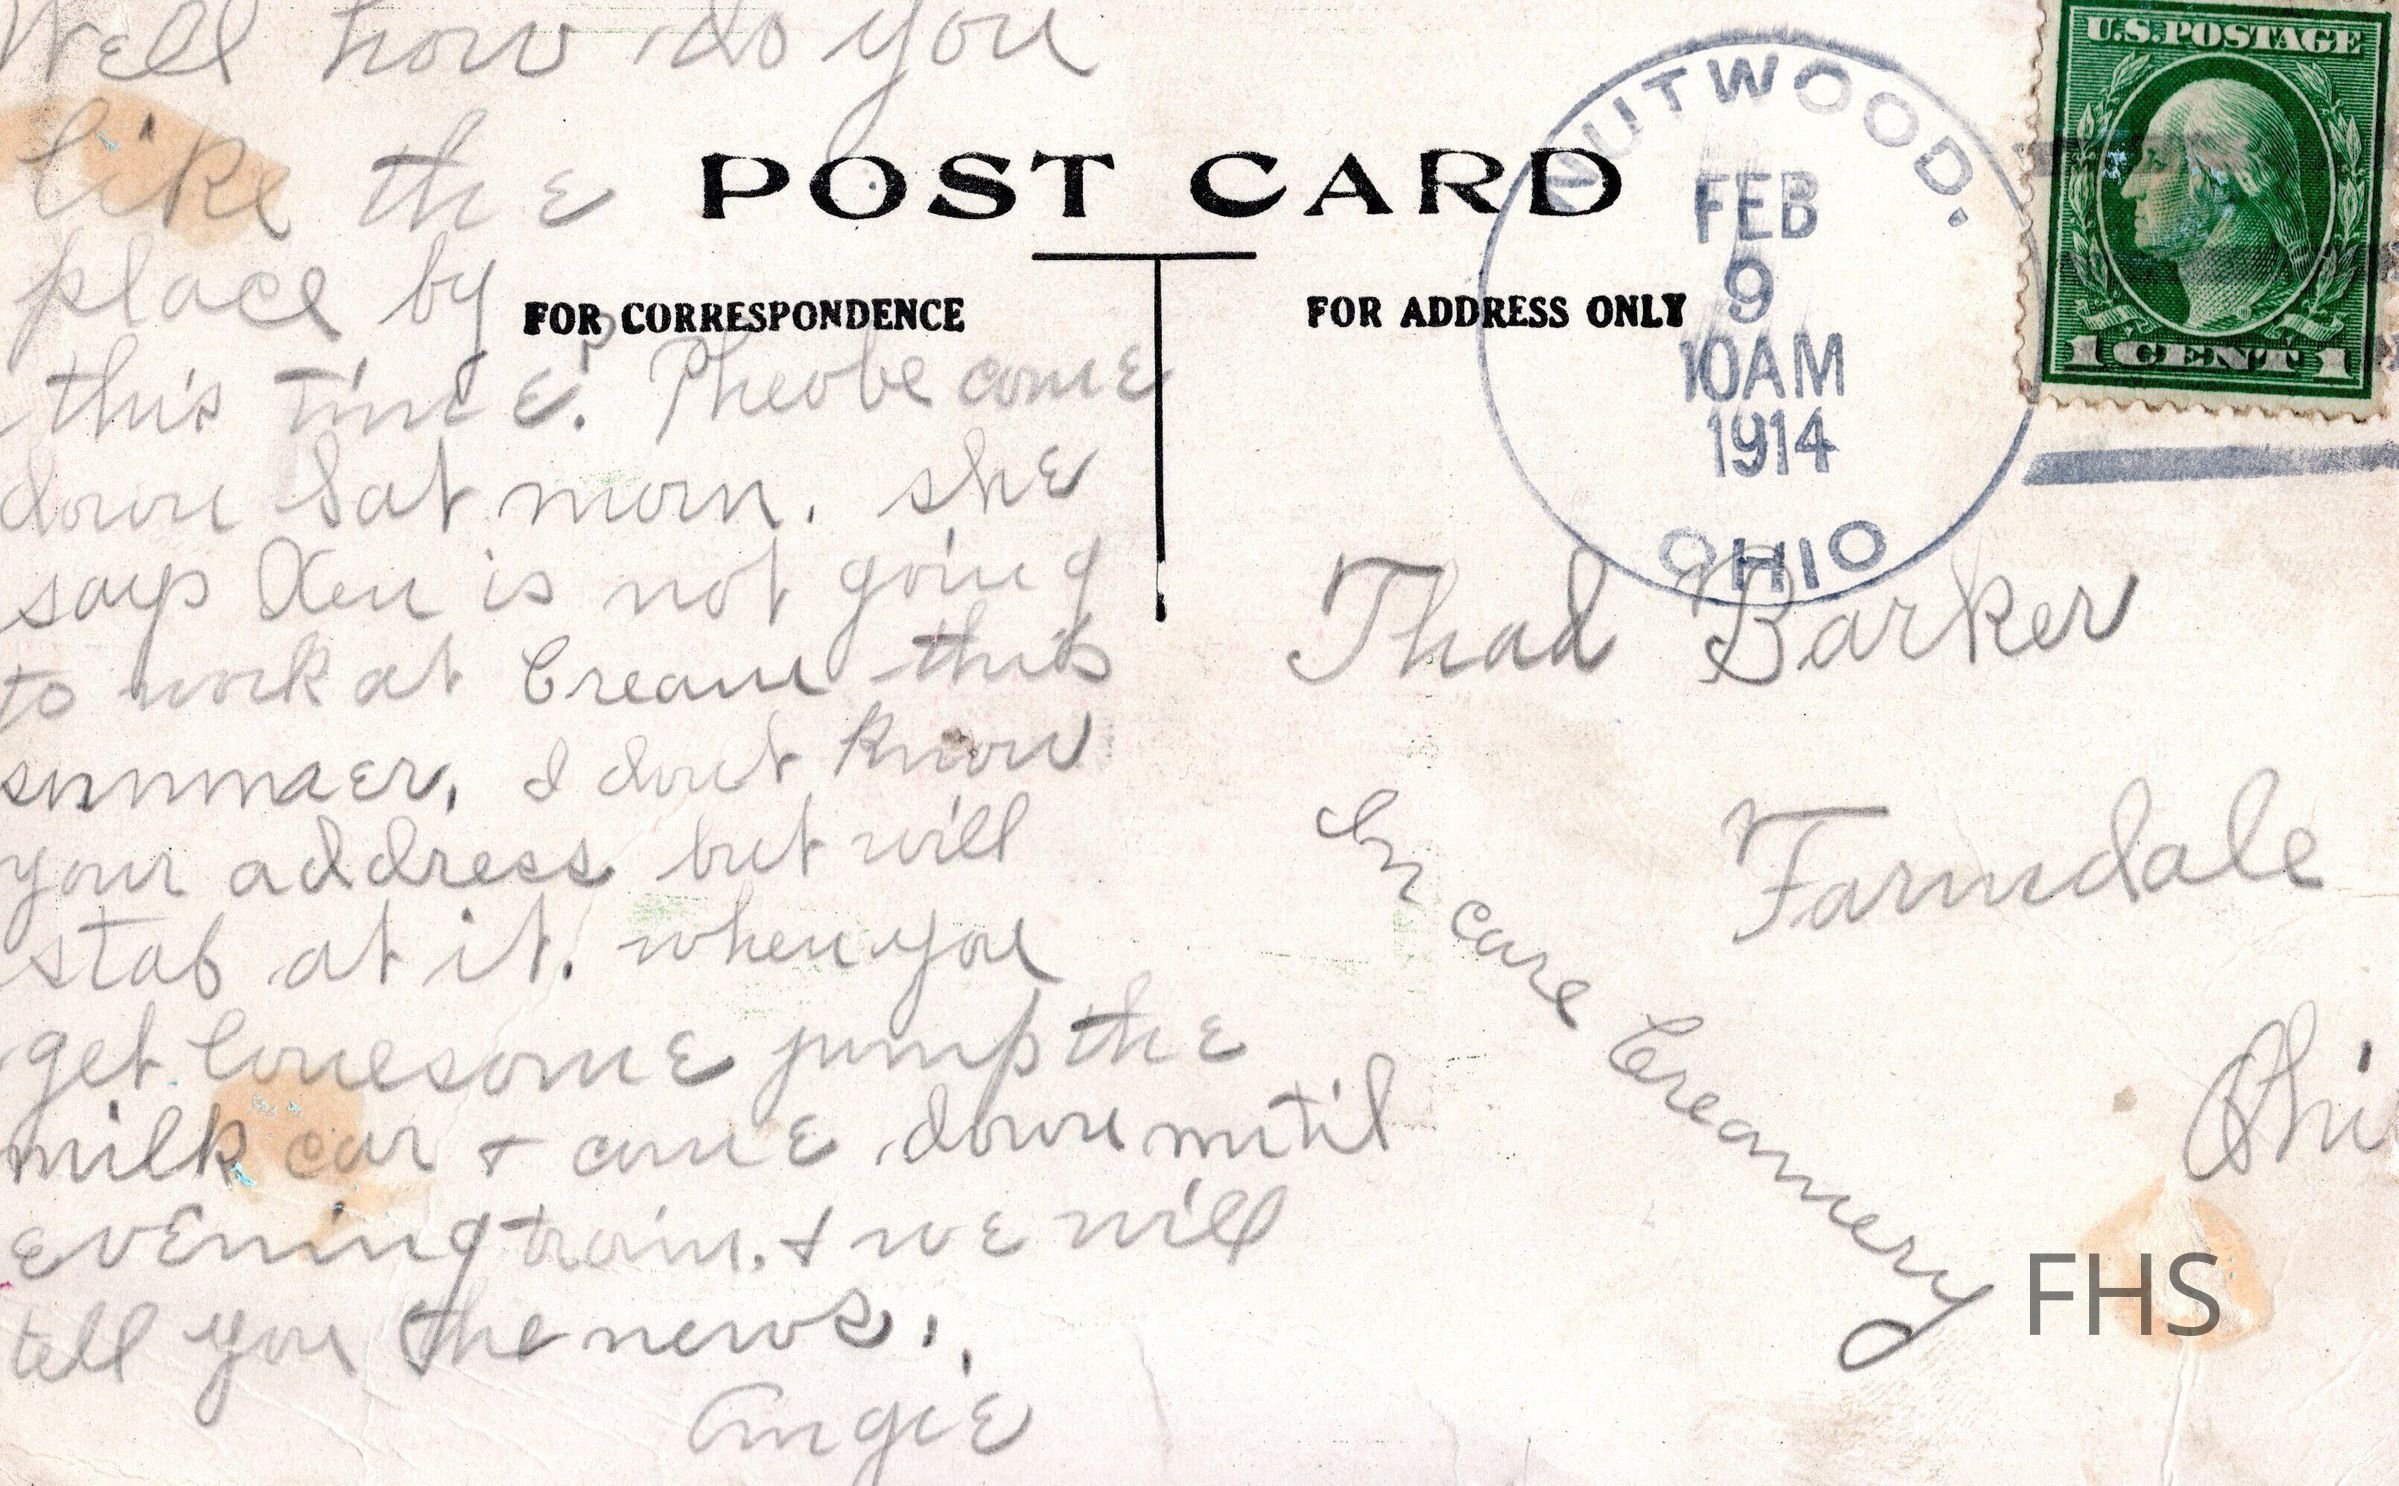 Well how do you
like the
place by
this time? Pheobe come
down Sat morn. she
says Xen is not going
to work at Cream this
summer. I dont know
your address but will
stab at it. when you
get lonesome jump the
milk car + come down until
evening train. + we will
tell you the news.
Angie
POST CARD
FOR CORRESPONDENCE
FOR ADDRESS ONLY
NUTWOOD.
FEB
9
10AM
1914
OHIO
U.S. POSTAGE
1 CENT 1
Thad Barker
Farmdale
Ohi
In care Creamery
FHS